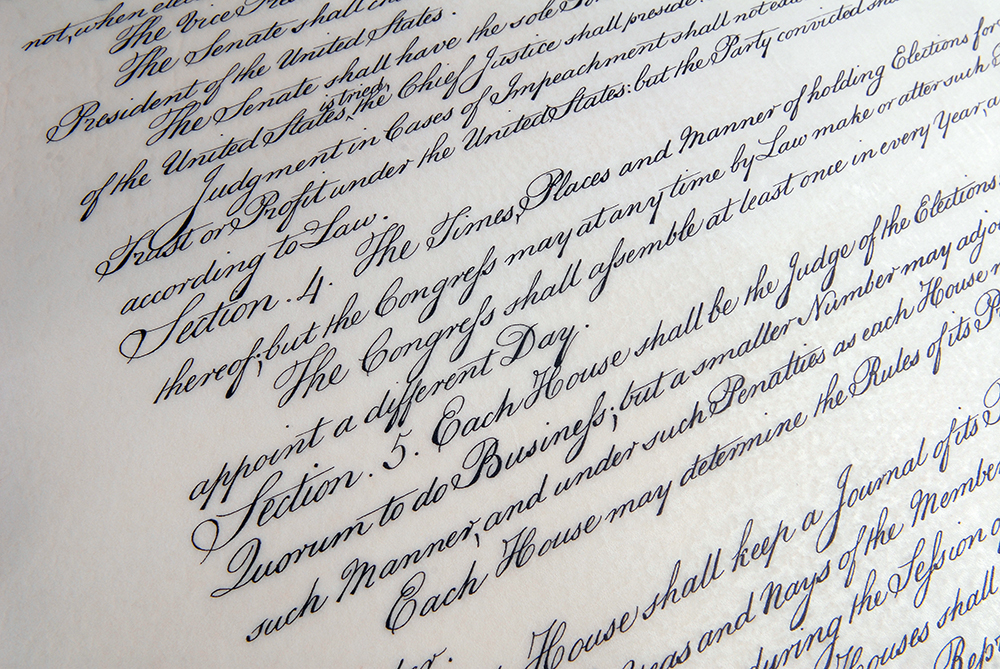 not, when elec
The Vice Pre
The Senate shall ch
President of the United States.
The Senate shall have the sole
of the United States, is tried, the Chief Justice shall preside
Judgment in Cases of Impeachment shall not exte
Trust or Profit under the United States: but the Party convicted sha
according to Law.
Section. 4. The Times, Places and Manner of holding Elections for
thereof; but the Congreſs may at any time by Law make or alter such
The Congreſs shall aſsemble at least once in every Year, a
appoint a different Day.
Section. 5. Each House shall be the Judge of the Elections
Quorum to do Busineſs; but a smaller Number may adjo
such Manner, and under such Penalties as each House
Each House may determine the Rules of its P
House shall keep a Journal of its
eas and Nays of the Member
during the Seſsion o
Houses shall
Repr